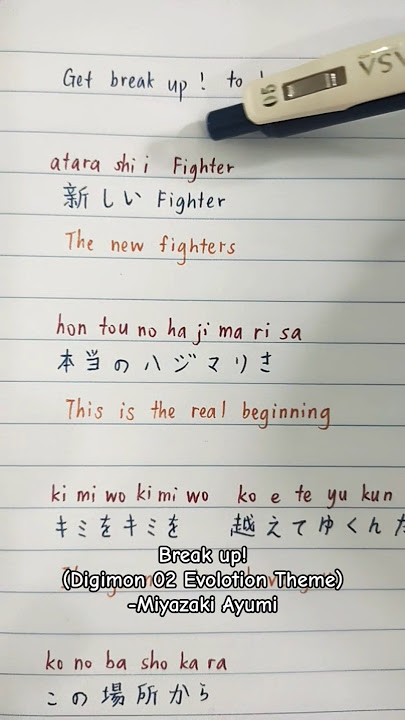 Get break up! to
05
SA
atara shi i Fighter
新しい Fighter
The new fighters
hon tou no ha ji ma ri sa
本当のハジマリさ
This is the real beginning
ki mi wo ki mi wo ko e te yu kun
キミをキミを 越えてゆくんだ
Break up!
(Digimon 02 Evolotion Theme)
-Miyazaki Ayumi
ko no ba sho ka ra
この場所から